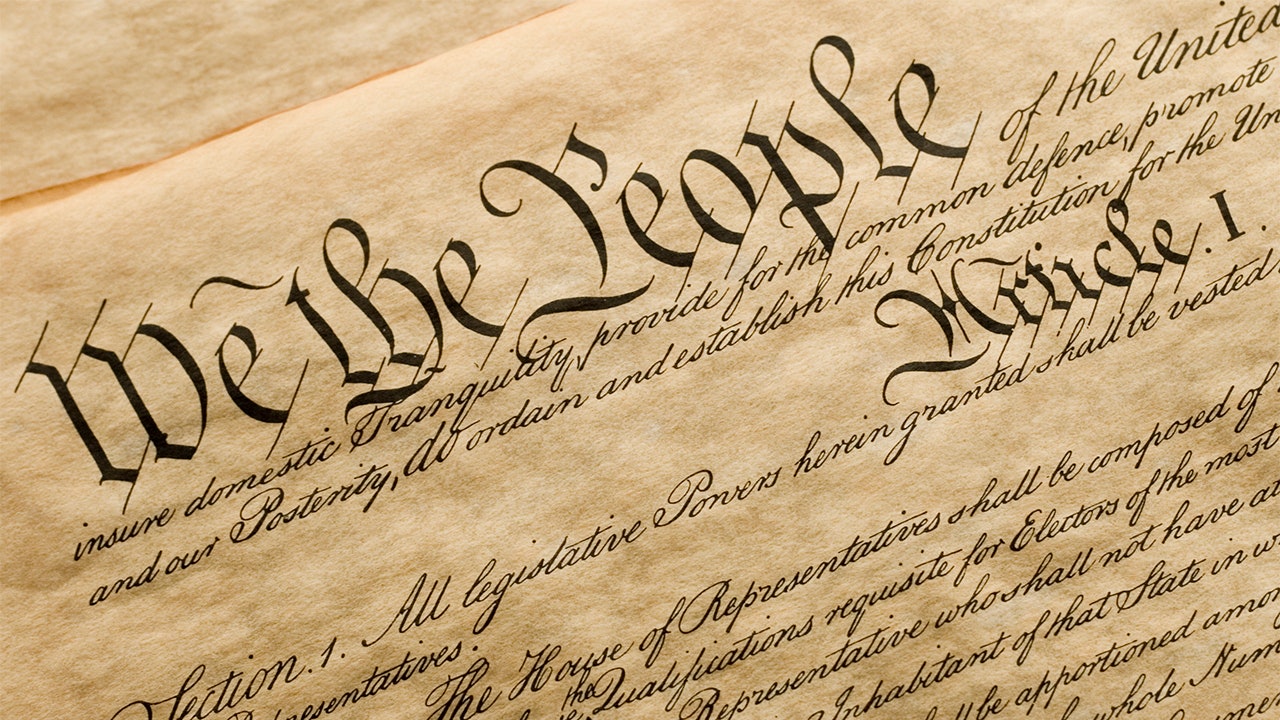 We the People of the United
insure domestic Tranquility, provide for the common defence, promote
and our Posterity, do ordain and establish this Constitution for the Un
Article. I.
Section. 1. All legislative Powers herein granted shall be vested
resentatives.
The House of Representatives shall be composed of
the Qualifications requisite for Electors of the most
Representative who shall not have at
Inhabitant of that State in w
be apportioned amon
whole Num